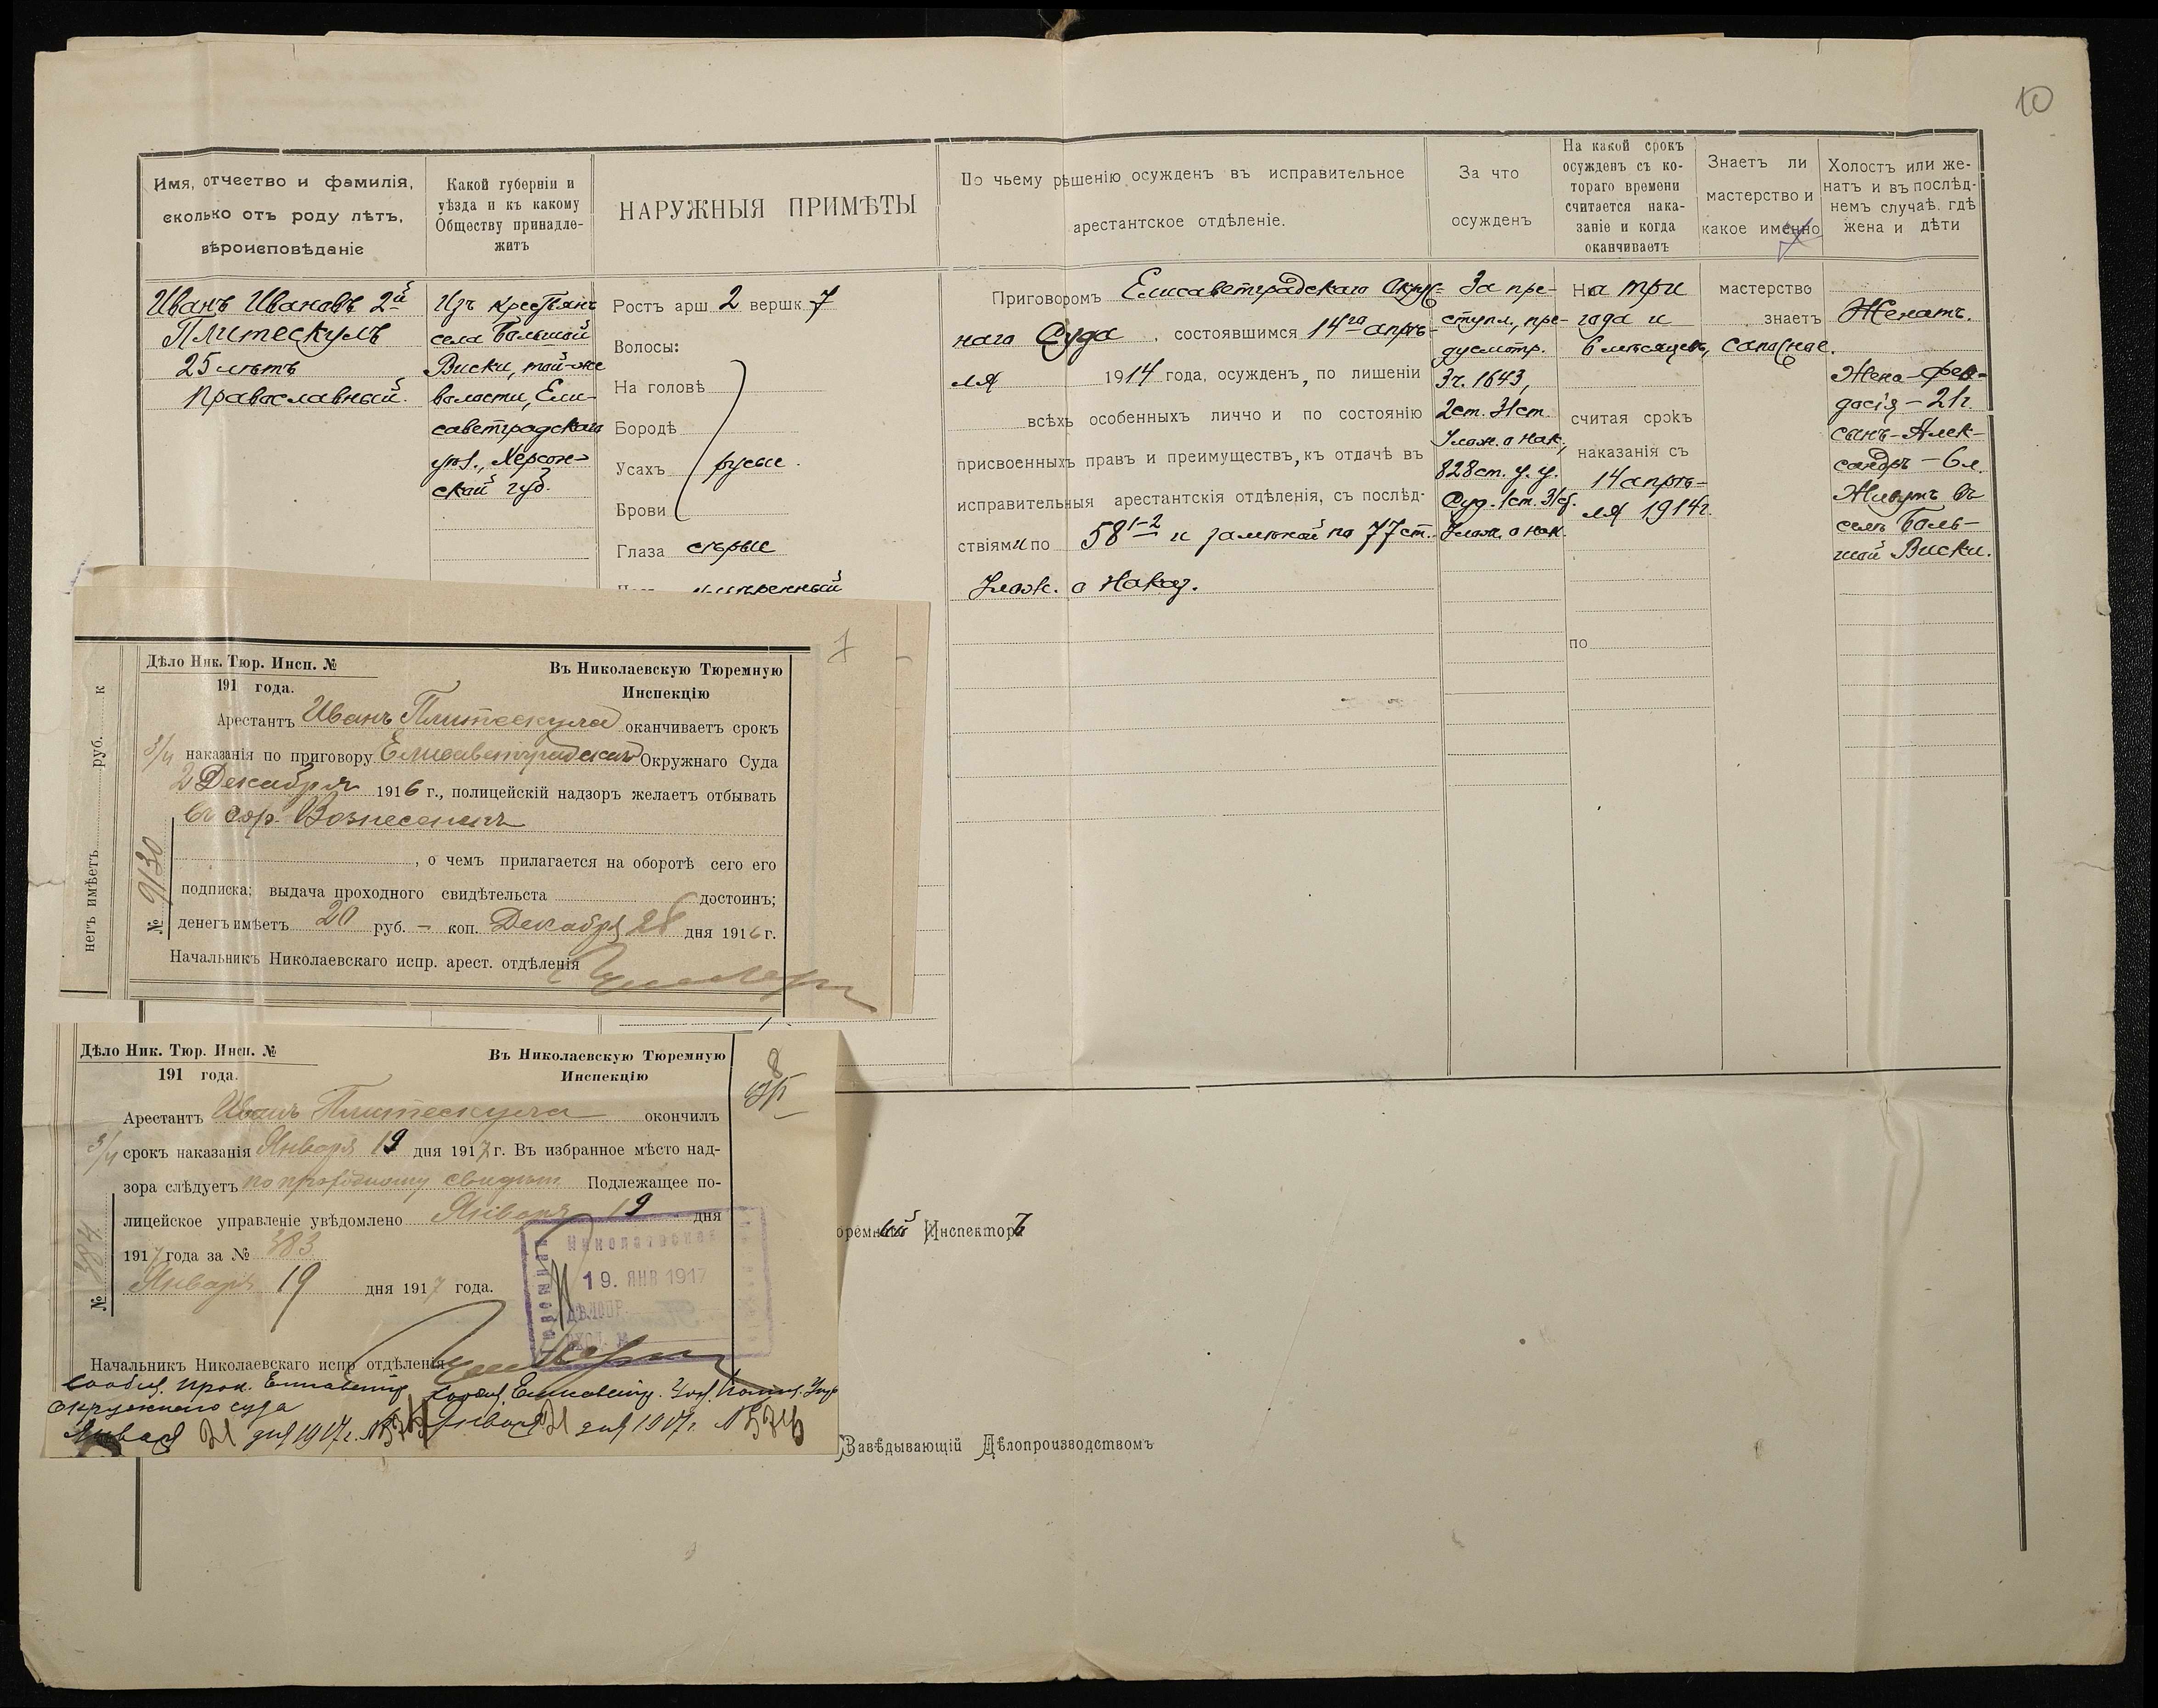 10
Имя, отчество и фамилія,
сколько отъ роду лѣтъ,
вѣроисповѣданіе
Какой губерніи и
уѣзда и къ какому
Обществу принадле-
житъ
НАРУЖНЫЯ ПРИМѢТЫ
По чьему рѣшенію осужденъ въ исправительное
арестантское отдѣленіе.
За что
осужденъ
На какой срокъ
осужденъ съ ко-
тораго времени
считается нака-
заніе и когда
оканчиваетъ
Знаетъ ли
мастерство и
какое именно
Холостъ или же-
натъ и въ послѣд-
немъ случаѣ, гдѣ
жена и дѣти
Иванъ Ивановъ 2й
Плитескулъ
25 лѣтъ
Православный.
Изъ крестьянъ
села Большой
Виски, той-же
волости, Ели-
саветградскаго
уѣз., Херсон-
ской губ.
Ростъ арш 2 вершк 7
Волосы:
На головѣ
Бородѣ
Усахъ русые.
Брови
Глаза сѣрые
умѣренный
Приговоромъ Елисаветградскаго Окруж-
наго Суда, состоявшимся 14го апрѣ-
ля 1914 года, осужденъ, по лишеніи
всѣхъ особенныхъ лично и по состоянію
присвоенныхъ правъ и преимуществъ, къ отдачѣ въ
исправительныя арестантскія отдѣленія, съ послѣд-
ствіями по 58 1-2 и замѣной по 77 ст.
Улож. о Наказ.
За пре-
ступл., пре-
дусмотр.
3 ч. 1643,
2 ст. 31 ст.
Улож. о нак.,
828 ст. у. у.
Суд. 1 ст. 31 ст.
Улож. о нак.
На три
года и
6 мѣсяцевъ,
считая срокъ
наказанія съ
14 апрѣ-
ля 1914 г.
по
мастерство
знаетъ
сапожное.
Женатъ.
Жена - Фео-
досія - 21 г.
сынъ - Алек-
сандръ - 6 л.
Живутъ въ
селѣ Боль-
шой Виски.
негъ имѣетъ руб. к
7
Дѣло Ник. Тюр. Инсп. №
191 года.
Въ Николаевскую Тюремную
Инспекцію
Арестантъ Иванъ Плитескула оканчиваетъ срокъ
3/4 наказанія по приговору Елисаветградскаго Окружнаго Суда
2 Декабря 1916 г., полицейскій надзоръ желаетъ отбывать
въ гор. Вознесенскъ
, о чемъ прилагается на оборотѣ сего его
подписка; выдача проходного свидѣтельства достоинъ;
денегъ имѣетъ 20 руб. — коп. Декабря 28 дня 1916 г.
№ 9130
Начальникъ Николаевскаго испр. арест. отдѣленія
8
Дѣло Ник. Тюр. Инсп. №
191 года.
Въ Николаевскую Тюремную
Инспекцію
Арестантъ Иванъ Плитескула окончилъ
3/4 срокъ наказанія Января 19 дня 1917 г. Въ избранное мѣсто над-
зора слѣдуетъ по проходному свидѣт. Подлежащее по-
лицейское управленіе увѣдомлено Января 19 дня
1917 года за № 383
Января 19 дня 1917 года.
№ 384
Николаевская
19. ЯНВ 1917
ДѢЛОПР.
ВХОД. №
Начальникъ Николаевскаго испр отдѣленія
Сообщ. прок. Елисаветгр.
Окружнаго суда
Января 21 дня 1917 г. №
Сообщ. Елисаветгр. Уѣзд. Полиц. Упр.
Января 21 дня 1917 г. №
юремный Инспекторъ
Завѣдывающій Дѣлопроизводствомъ